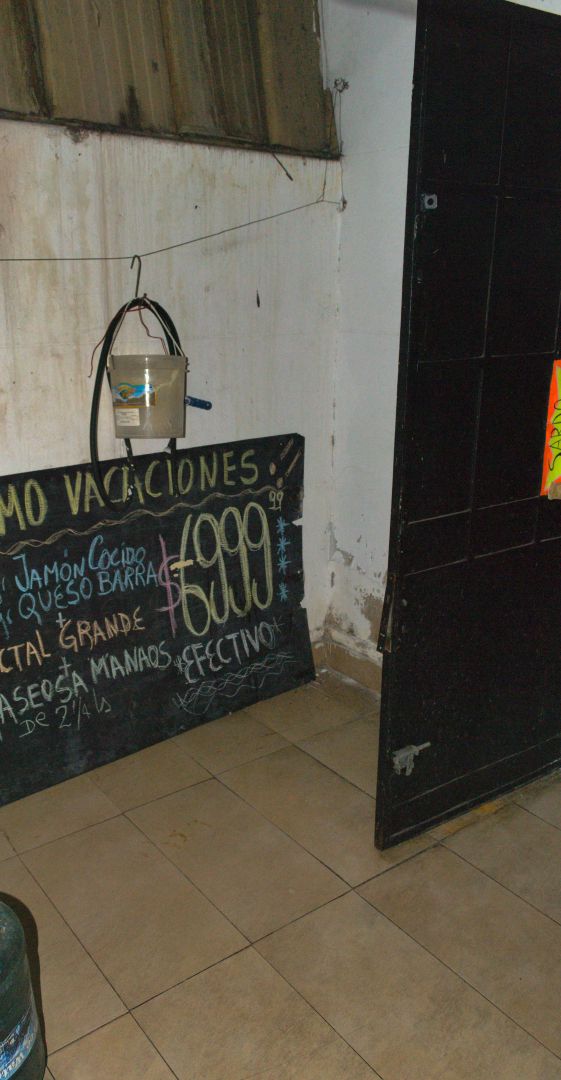 MO VACACIONES
JAMÓN COCIDO
QUESO BARRA
$6999 99
+
CTAL GRANDE
+
ASEOSA MANAOS
*EFECTIVO*
De 2 1/4 ls
SARDO